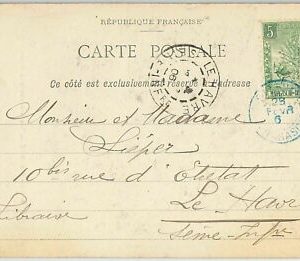 RÉPUBLIQUE FRANÇAISE
CARTE POSTALE
Ce côté est exclusivement réservé à l'adresse
LE HAVRE
5
28
6
Monsieur et Madame
Liéper
10 bis rue d'Etretat
Le Havre
Libraire
Seine-Infre